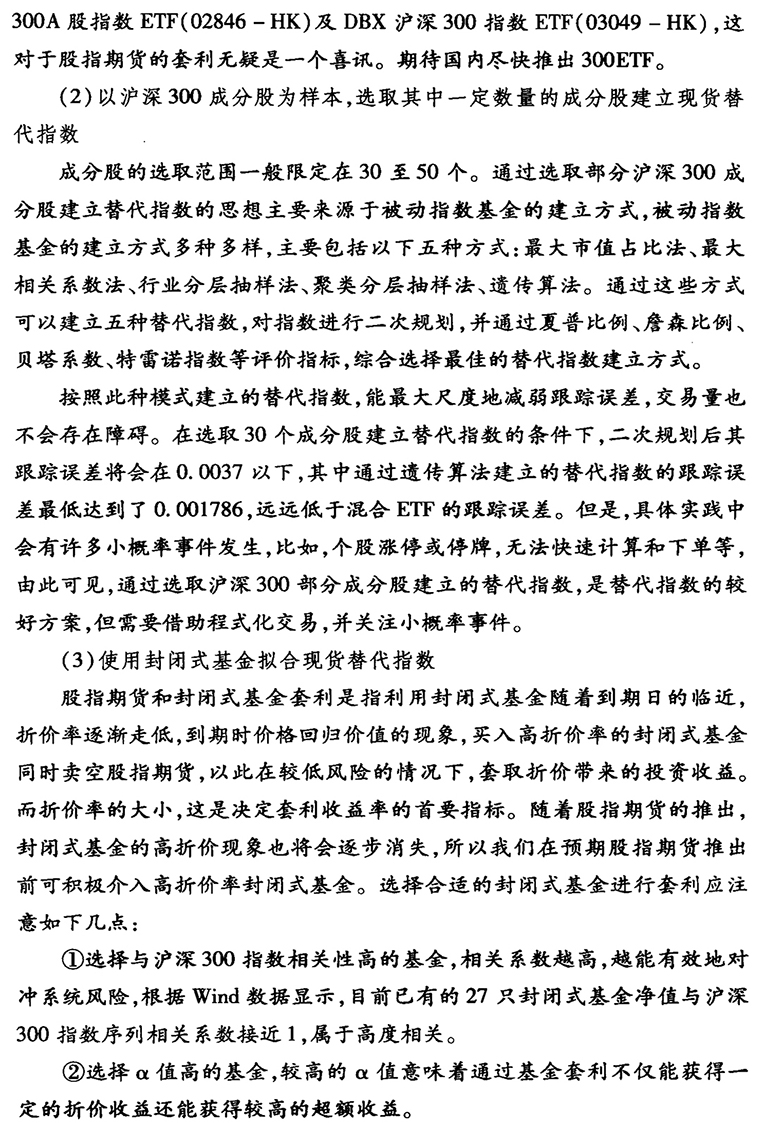 300A 股指数 ETF(02846 – HK)及 DBX 沪深 300 指数 ETF(03049 – HK),这
对于股指期货的套利无疑是一个喜讯。期待国内尽快推出 300ETF。
(2)以沪深 300 成分股为样本,选取其中一定数量的成分股建立现货替
代指数
成分股的选取范围一般限定在 30 至 50 个。通过选取部分沪深 300 成
分股建立替代指数的思想主要来源于被动指数基金的建立方式,被动指数
基金的建立方式多种多样,主要包括以下五种方式:最大市值占比法、最大
相关系数法、行业分层抽样法、聚类分层抽样法、遗传算法。通过这些方式
可以建立五种替代指数,对指数进行二次规划,并通过夏普比例、詹森比例、
贝塔系数、特雷诺指数等评价指标,综合选择最佳的替代指数建立方式。
按照此种模式建立的替代指数,能最大尺度地减弱跟踪误差,交易量也
不会存在障碍。在选取 30 个成分股建立替代指数的条件下,二次规划后其
跟踪误差将会在 0.0037 以下,其中通过遗传算法建立的替代指数的跟踪误
差最低达到了 0.001786,远远低于混合 ETF 的跟踪误差。但是,具体实践中
会有许多小概率事件发生,比如,个股涨停或停牌,无法快速计算和下单等,
由此可见,通过选取沪深 300 部分成分股建立的替代指数,是替代指数的较
好方案,但需要借助程式化交易,并关注小概率事件。
(3)使用封闭式基金拟合现货替代指数
股指期货和封闭式基金套利是指利用封闭式基金随着到期日的临近,
折价率逐渐走低,到期时价格回归价值的现象,买入高折价率的封闭式基金
同时卖空股指期货,以此在较低风险的情况下,套取折价带来的投资收益。
而折价率的大小,这是决定套利收益率的首要指标。随着股指期货的推出,
封闭式基金的高折价现象也将会逐步消失,所以我们在预期股指期货推出
前可积极介入高折价率封闭式基金。选择合适的封闭式基金进行套利应注
意如下几点:
①选择与沪深 300 指数相关性高的基金,相关系数越高,越能有效地对
冲系统风险,根据 Wind 数据显示,目前已有的 27 只封闭式基金净值与沪深
300 指数序列相关系数接近 1,属于高度相关。
②选择 α 值高的基金,较高的 α 值意味着通过基金套利不仅能获得一
定的折价收益还能获得较高的超额收益。